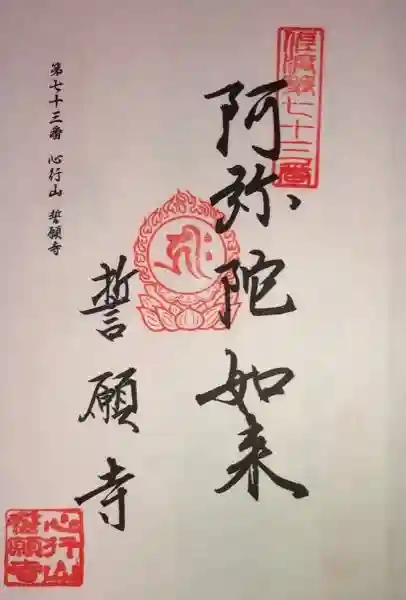 七十三番
阿弥陀如来
誓願寺
第七十三番　心行山　誓願寺
心行山
誓願寺